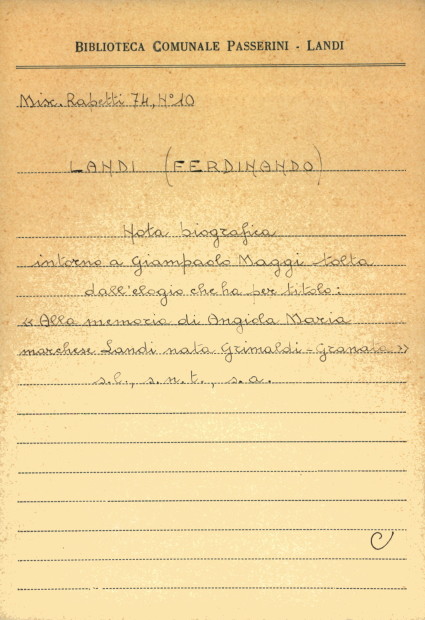 BIBLIOTECA COMUNALE PASSERINI - LANDI
Misc. Rabetti 74, N° 10
LANDI (FERDINANDO)
Nota biografica
intorno a Giampaolo Maggi tolta
dall'elogio che ha per titolo:
« Alla memoria di Angiola Maria
marchese Landi nata Grimaldi - Granata »
s.l., s.n.t., s.a.
C